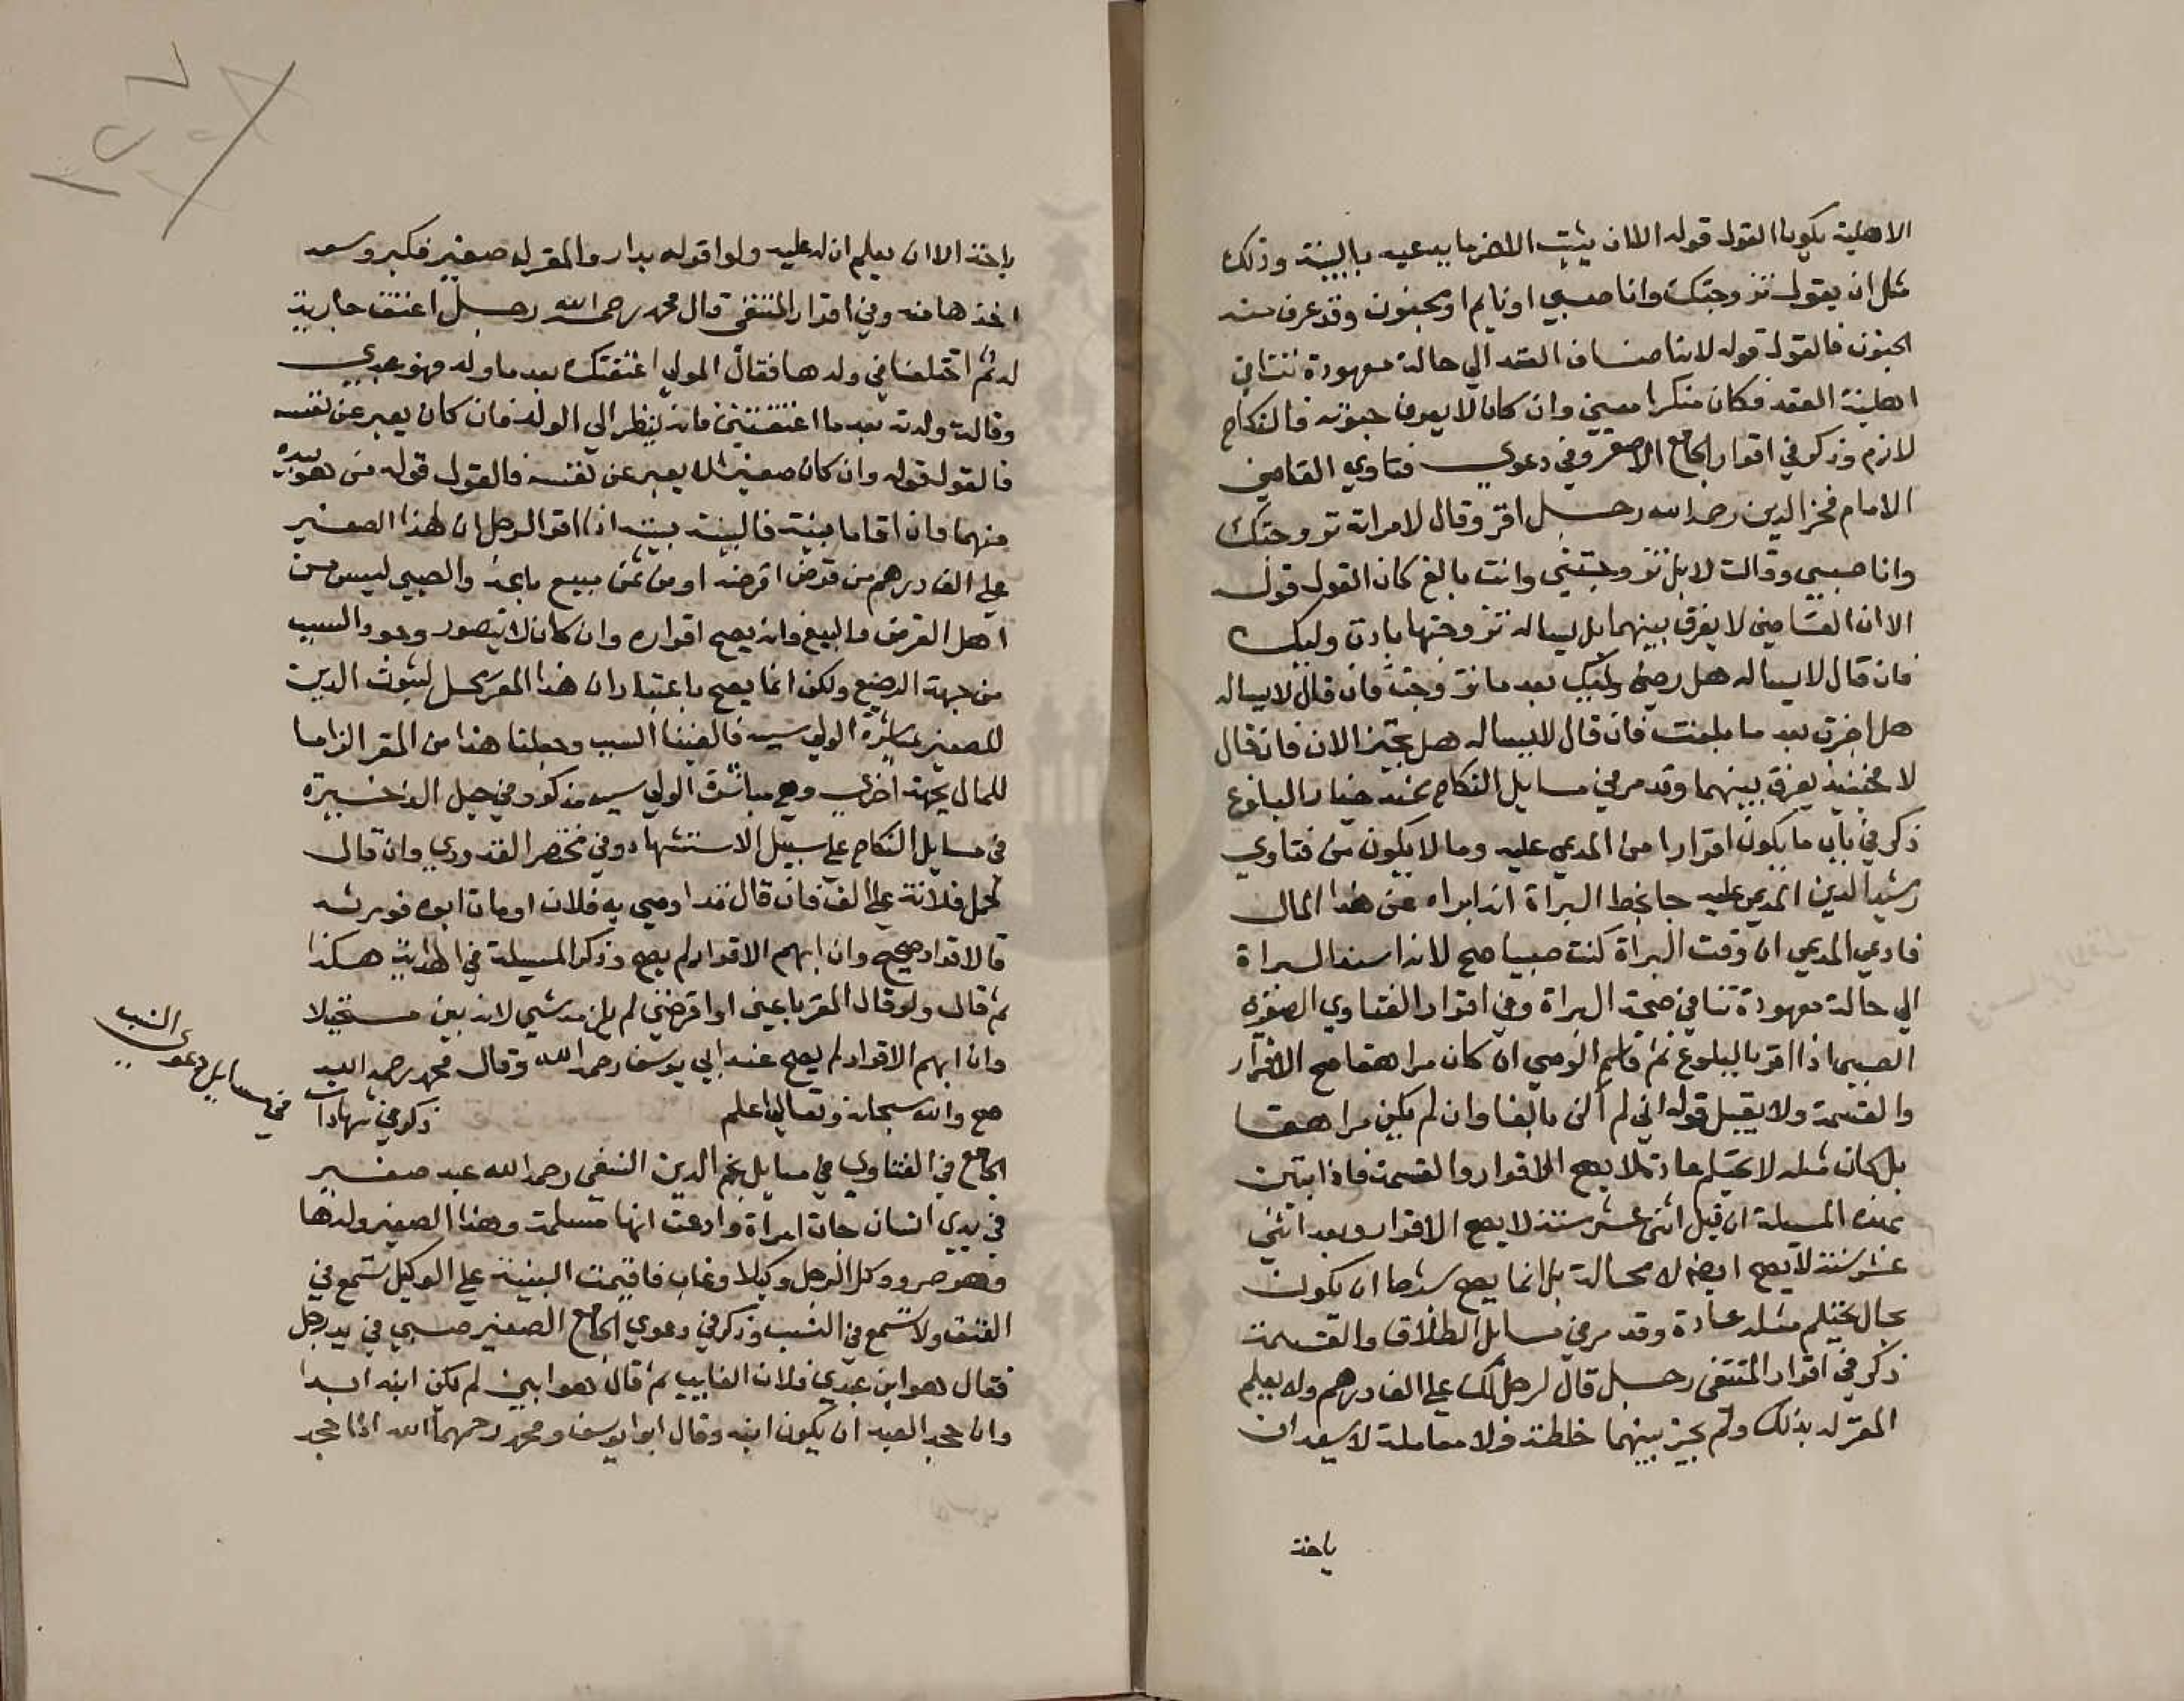 الاهلية يكون القول قوله الا ان يثبت الاخر ما يدعيه بالبينة وذلك
مثل ان يقول تزوجتك وانا صبي او نايم او مجنون وقد عرف منه
الجنون فالقول قوله لانه اضاف العقد الي حالة معهودة تنافي
اهلية العقد فكان منكرا معني وان كان لا يعرف جنونه فالنكاح
لازم وذكر في اقرار الجامع الاصغر وفي دعوي فتاوي القاضي
الامام فخر الدين رحمه الله رجل اقر وقال لامراته تزوجتك
وانا صبي وقالت لا بل تزوجتني وانت بالغ كان القول قوله
الا ان القاضي لا يفرق بينهما بل يساله تزوجتها باذن وليك
فان قال لا يساله هل رضي وليك بعد ما تزوجت فان قال لا يساله
هل اجزت بعد ما بلغت فان قال لا يساله هل تجيز الان فان قال
لا فحينيذ يفرق بينهما وقد مر في مسايل النكاح عند خيار البلوغ
ذكر في باب ما يكون اقرارا من المدعي عليه وما لا يكون من فتاوي
رشيد الدين المدعي عليه جا بخط البراة انه ابراه عن هذا المال
فادعي المدعي ان وقت البراة كنت صبيا صح لانه اسند البراة
الي حالة معهودة تنافي صحة البراة وفي اقرار الفتاوي الصغري
الصبي اذا اقر بالبلوغ ثم قاسم الوصي ان كان مراهقا صح الاقرار
والقسمة ولا يقبل قوله اني لم اكن بالغا وان لم يكن مراهقا
بل كان مثله لا يحتلم عادة لا يصح الاقرار والقسمة فاذا تبين
بهذه المسيلة ان قبل اثني عشر سنة لا يصح الاقرار وبعد اثني
عشر سنة لا يصح ايضا لا محالة بل انما يصح بشرط ان يكون
بحال يحتلم مثله عادة وقد مر في مسايل الطلاق والقسمة
ذكر في اقرار المنتقى رجل قال لرجل لك علي الف درهم ولا يعلم
المقر له بذلك ولم يجز بينهما خلطة ولا معاملة لا يسعه ان
ياخذ
ياخذ الا ان يعلم ان له عليه ولو اقر له بدار والمقر له صغير فكبر وسعه
اخذها منه وفي اقرار المنتقى قال محمد رحمه الله رجل اعتق جارية
له ثم اختلفا في ولدها فقال المولي اعتقتك بعد ما ولد فهو عبدي
وقالت ولدته بعد ما اعتقتني فانه ينظر الي الولد فان كان يعبر عن نفسه
فالقول قوله وان كان صغيرا لا يعبر عن نفسه فالقول قوله من هو بيده
منهما فان اقاما بينة فالبينة بينته اذا اقر الرجل ان لهذا الصغير
علي الف درهم من قرض اقرضه او من ثمن مبيع باعه والصبي ليس من
اهل القرض والبيع فانه يصح اقراره وان كان لا يتصور وجود السبب
من جهة الرضيع ولكن انما يصح باعتبار ان هذا المقر محل لثبوت الدين
للصغير بمباشرة الولي سببه فالغينا السبب وجعلنا هذا من المقر الزاما
للمال بجهة اخري وهي مباشرة الولي سببه مذكور في حيل الذخيرة
في مسايل النكاح علي سبيل الاستشهاد وفي مختصر القدوري وان قال
لحمل فلانة علي الف فان قال قد اوصي به فلان او مات ابوه فورثه
فالاقرار صحيح وان ابهم الاقرار لم يصح وذكر المسيلة في الهداية هكذا
ثم قال ولو قال المقر باعني او اقرضني لم يلزمه شي لانه بين مستحيلا
وان ابهم الاقرار لم يصح عند ابي يوسف رحمه الله وقال محمد رحمه الله
صح والله سبحانه وتعالي اعلم ذكر في شهادات
في مسايل دعوي النسب
الجامع في الفتاوي في مسايل نجم الدين النسفي رحمه الله عبد صغير
في يدي انسان جات امراة وادعت انها مسلمة وهذا الصغير ولدها
وهو حر ووكل الرجل وكيلا وغاب فاقيمت البينة علي الوكيل تسمع في
العتق ولا تسمع في النسب وذكر في دعوي الجامع الصغير صبي في يد رجل
فقال هو ابن عبدي فلان الغايب ثم قال هو ابني لم يكن ابنه ابدا
وان جحد العبد ان يكون ابنه وقال ابو يوسف ومحمد رحمهما الله اذا جحد